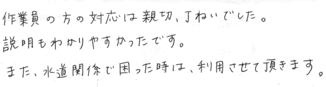 作業員の方の対応は親切、丁ねいでした。
説明もわかりやすかったです。
また、水道関係で困った時は、利用させて頂きます。